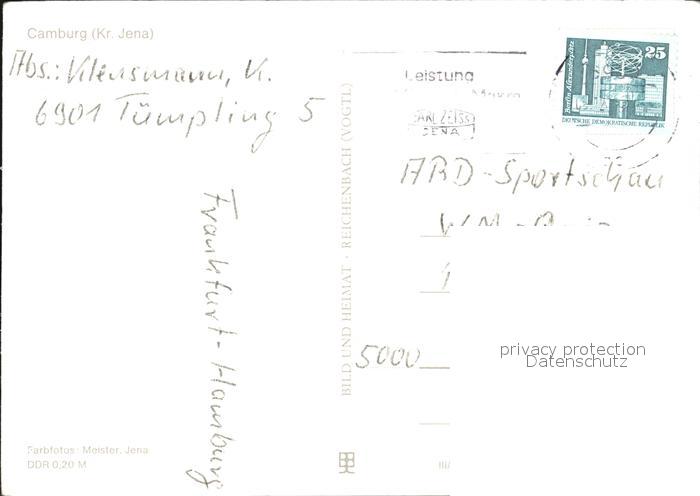 Camburg (Kr. Jena)
Abs.: Klensmann, K.
6901 Tümpling 5
Frankfurt-Hamburg
Farbfotos: Meister, Jena
DDR 0,20 M
BILD UND HEIMAT · REICHENBACH (VOGTL)
Leistung
CARL ZEISS
JENA
25
Berlin, Alexanderplatz
DEUTSCHE DEMOKRATISCHE REPUBLIK
ARD-Sportschau
WM-
5000
privacy protection
Datenschutz
III/